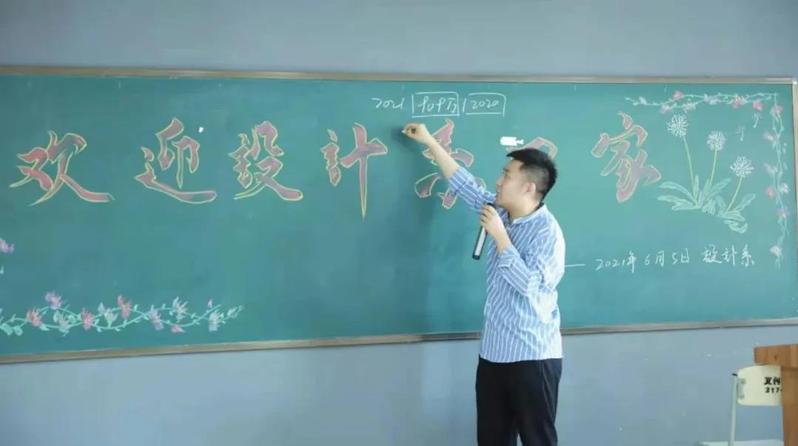 2021 2020
欢迎设计系 家
2021年6月5日 设计系